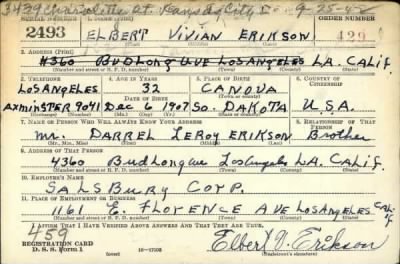 3439 Charlotte St. Kansas City Mo. 9-25-42
SERIAL NUMBER 1. NAME (Print) ORDER NUMBER
2493 ELBERT VIVIAN ERIKSON 429
(First) (Middle) (Last)
2. ADDRESS (Print)
4360 BUDLONG AVE LOS ANGELES L.A. CALIF.
(Number and street or R. F. D. number) (Town) (County) (State)
3. TELEPHONE 4. AGE IN YEARS 5. PLACE OF BIRTH 6. COUNTRY OF CITIZENSHIP
LOS ANGELES 32 CANOVA
DATE OF BIRTH (Town or county)
AXMINSTER 9041 DEC 6 1907 SO. DAKOTA U.S.A.
(Exchange) (Number) (Mo.) (Day) (Yr.) (State or country)
7. NAME OF PERSON WHO WILL ALWAYS KNOW YOUR ADDRESS 8. RELATIONSHIP OF THAT PERSON
Mr. DARREL LEROY ERIKSON Brother
(Mr., Mrs., Miss) (First) (Middle) (Last)
9. ADDRESS OF THAT PERSON
4360 Budlong ave Los Angeles L.A. CALIF.
(Number and street or R. F. D. number) (Town) (County) (State)
10. EMPLOYER'S NAME
SALSBURY CORP.
11. PLACE OF EMPLOYMENT OR BUSINESS
1161 E. FLORENCE AVE LOS ANGELES CALIF
(Number and street or R. F. D. number) (Town) (County) (State)
I AFFIRM THAT I HAVE VERIFIED ABOVE ANSWERS AND THAT THEY ARE TRUE.
459
REGISTRATION CARD
D. S. S. Form 1 16-17105 Elbert V. Erikson
(Registrant's signature)